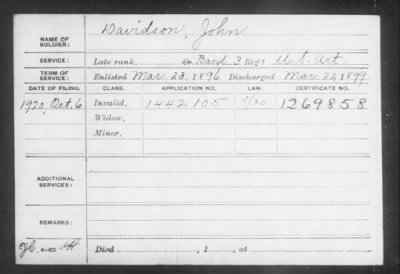 Davidson, John
NAME OF SOLDIER:
SERVICE: Late rank, Co. Band 3 Reg't U.S. Art.
TERM OF SERVICE: Enlisted Mar. 23, 1896 Discharged Mar. 22, 1899
DATE OF FILING. CLASS. APPLICATION NO. LAW. CERTIFICATE NO.
1920, Oct. 6 Invalid, 1442105 1269858
Widow,
Minor,
ADDITIONAL SERVICES:
REMARKS:
Died , 1 , at